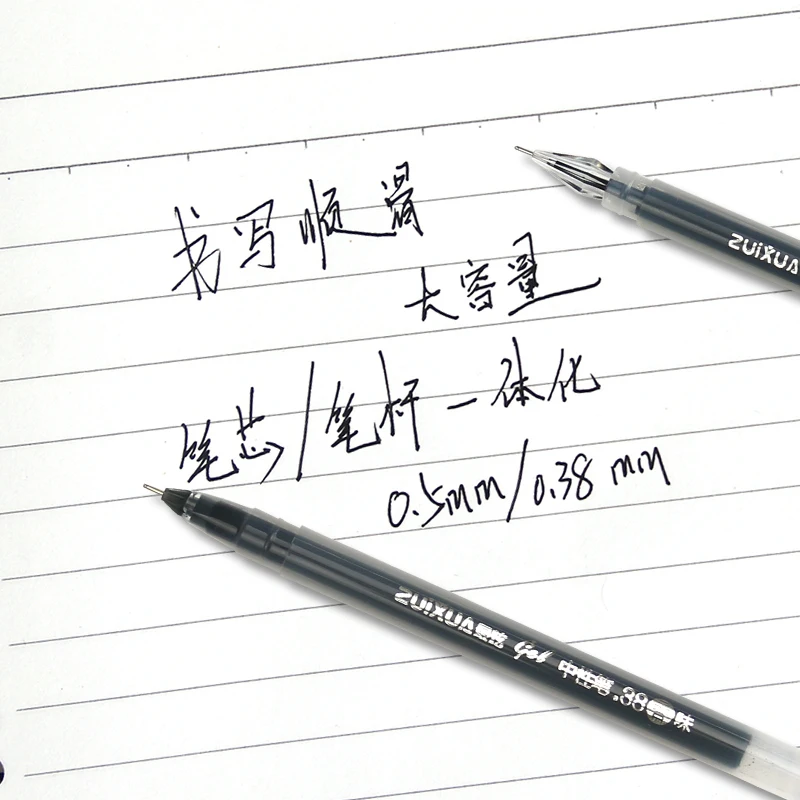 书写顺滑
ZUiXUA
大容量
笔芯/笔杆一体化
0.5mm/0.38mm
ZUiXUA 最炫 Gel 中性笔.38 味